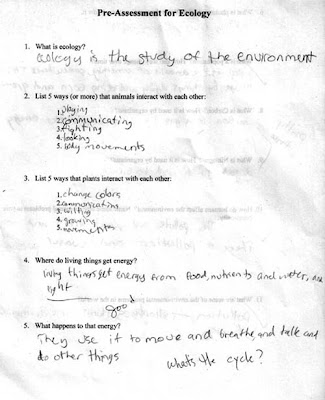 Pre-Assessment for Ecology
1. What is ecology?
ecology is the study of the environment
2. List 5 ways (or more) that animals interact with each other:
1. playing
2. communicating
3. fighting
4. looking
5. body movements
3. List 5 ways that plants interact with each other:
1. change colors
2. communicating
3. wilting
4. growing
5. movements
4. Where do living things get energy?
things get energy from food, nutrients and water, and
light
good
5. What happens to that energy?
They use it to move and breathe and talk and
do other things
what's the cycle?